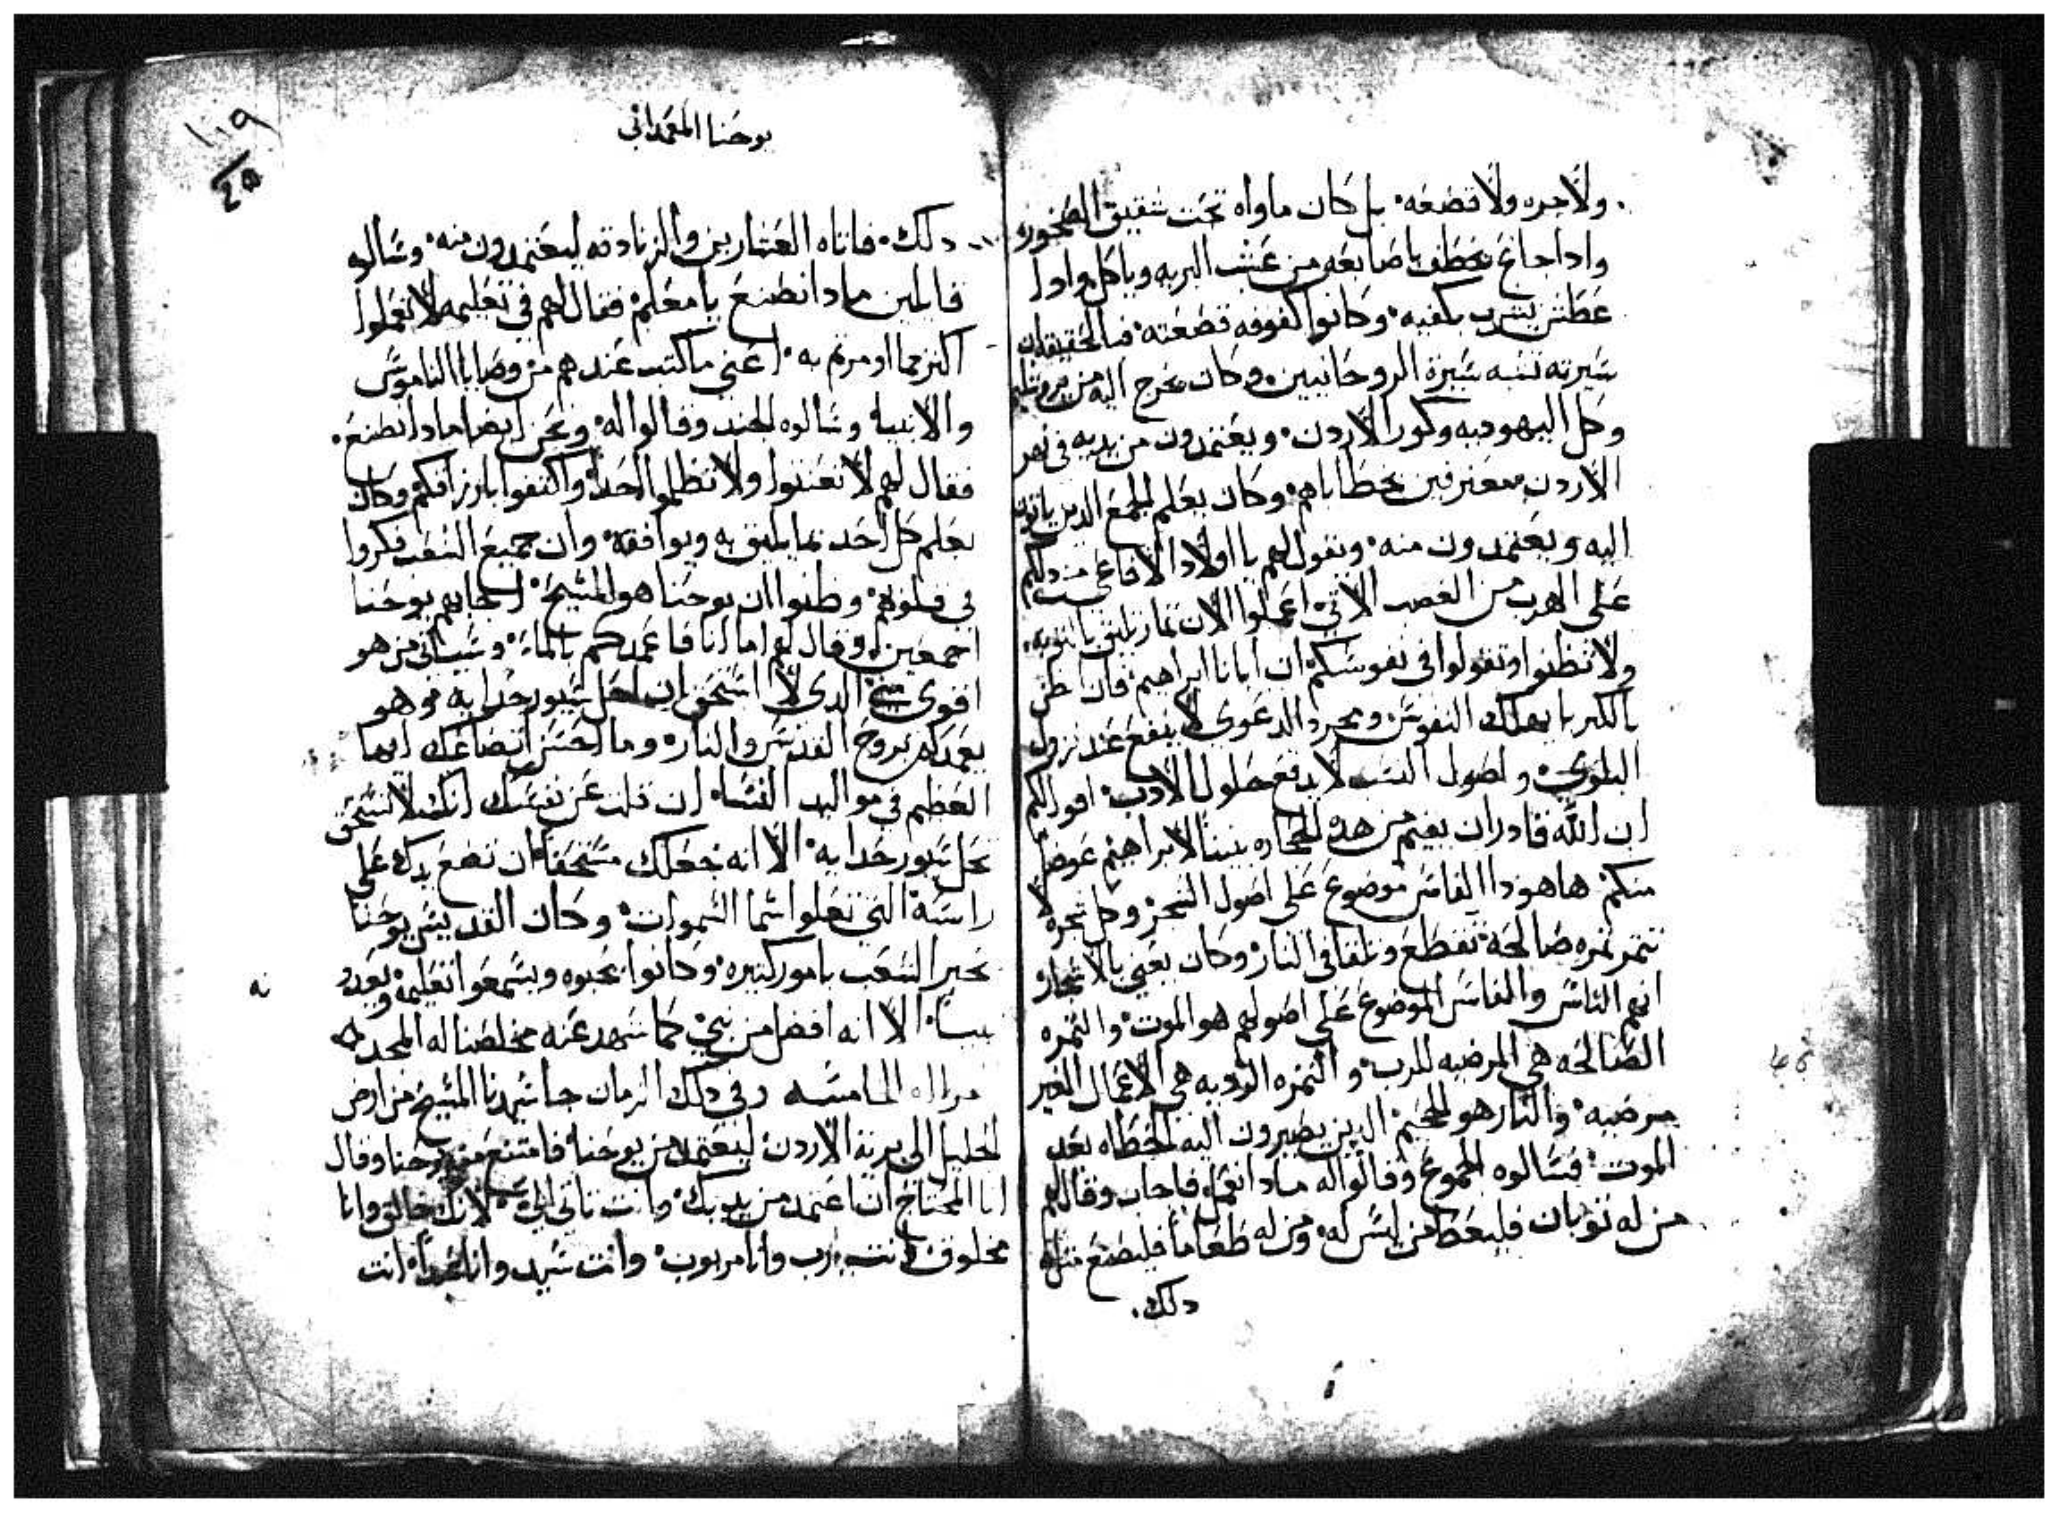 ولا جره ولا قضعه. بل كان ماواه تحت شقيق الصخور
واداجاع يخطف باصابعه من عشب البريه وياكل وادا
عطش يشرب بكفيه. وكانوا كفوفه قضعته. فبالحقيقه ان
سيرته تشبه سيرة الروحانيين. وكان يخرج اليه من يروشليم
وكل اليهوديه وكور الاردن. ويعتمدون من يديه في نهر
الاردن معترفين بخطاياهم. وكان يعلم الجمع الدين ياتون
اليه ويعتمدون منه. ويقول لهم يا اولاد الافاعي من دلكم
على الهرب من الغضب الاتي اعملوا الان ثمار تليق بالتوبه.
ولا تظنوا وتقولوا في نفوسكم ان ابانا ابراهيم. فان الظن
بالكبريا يهلك النفوس. ومجرد الدعوي لا ينفع عند نزول
البلوي. واصول النسب لا يدفع حلول الادب. اقول لكم
ان الله قادر ان يقيم من هده الحجاره بنينا لابراهيم عوضا
منكم. هاهودا الفاس موضوع على اصول الشجر. وكل شجره لا
تتمر تمره صالحة. تقطع وتلقا في النار. وكان يعني بالاشجار
انهم الناس والفاس الموضوع على اصولهم هو الموت. والتمره
الصالحه هي المرضيه للرب. والتمره الرديه هي الاعمال الغير
مرضيه. والنار هو الجحيم. الدين يصيرون اليه الخطاه بعد
الموت. فسالوه الجموع وقالوا له مادا نعمل فاجاب وقال لهم
من له توبان فليعط من ليس له. ومن له طعاما فليصنع متل
دلك.
يوحنا المعمداني
١٠٩
دلك. فاتاه العشارين والزنادقه ليعتمدون منه. وسالوه
قايلين مادا نصنع يا معلم. فقال لهم في تعليمه لا تعملوا
اكتر مما اومرتم به. اعني ما كتب عندهم من وصايا الناموس
والانبيا. وسالوه الجند وقالوا له. ونحن ايضا مادا نصنع.
فقال لهم لا تعنتوا ولا تظلموا احدا. واكتفوا بارزاقكم. وكان
يعلم كل احد بما يليق به ويوافقه. وان جميع الشعب فكروا
في قلوبهم. وظنوا ان يوحنا هو المسيح. اجابهم يوحنا
اجمعين. وقال لهم اما انا فاعمدكم بالماء. وسياتي من هو
اقوي مني الدي لا استحق ان احل سيور حدايه. فهو
يعمدكم بروح القدس والنار. وما احسن اتضاعك ايها
العظيم في مواليد النسا. ان قلت عن نفسك انك لا تستحق
تحل سيور حدايه. الا انه جعلك مستحقا. ان تضع يدك على
راسه التي تعلوا سما السموات. وكان القديس يوحنا
يخبر الشعب بامور كتيره. وكانوا يحبوه ويسمعوا تعليمه
نبيا. الا انه افضل من نبي كما شهد عنه مخلصنا له المجد
الخامسه وفي دلك الزمان جا سيدنا المسيح من ارض
الجليل الى برية الاردن. ليعتمد من يوحنا. فامتنع منه يوحنا وقال
انا المحتاج ان اعتمد من يديك. وانت تاتي الي. لانك خالق وانا
مخلوق. انت رب وانا مربوب. وانت سيد وانا عبدا. انت